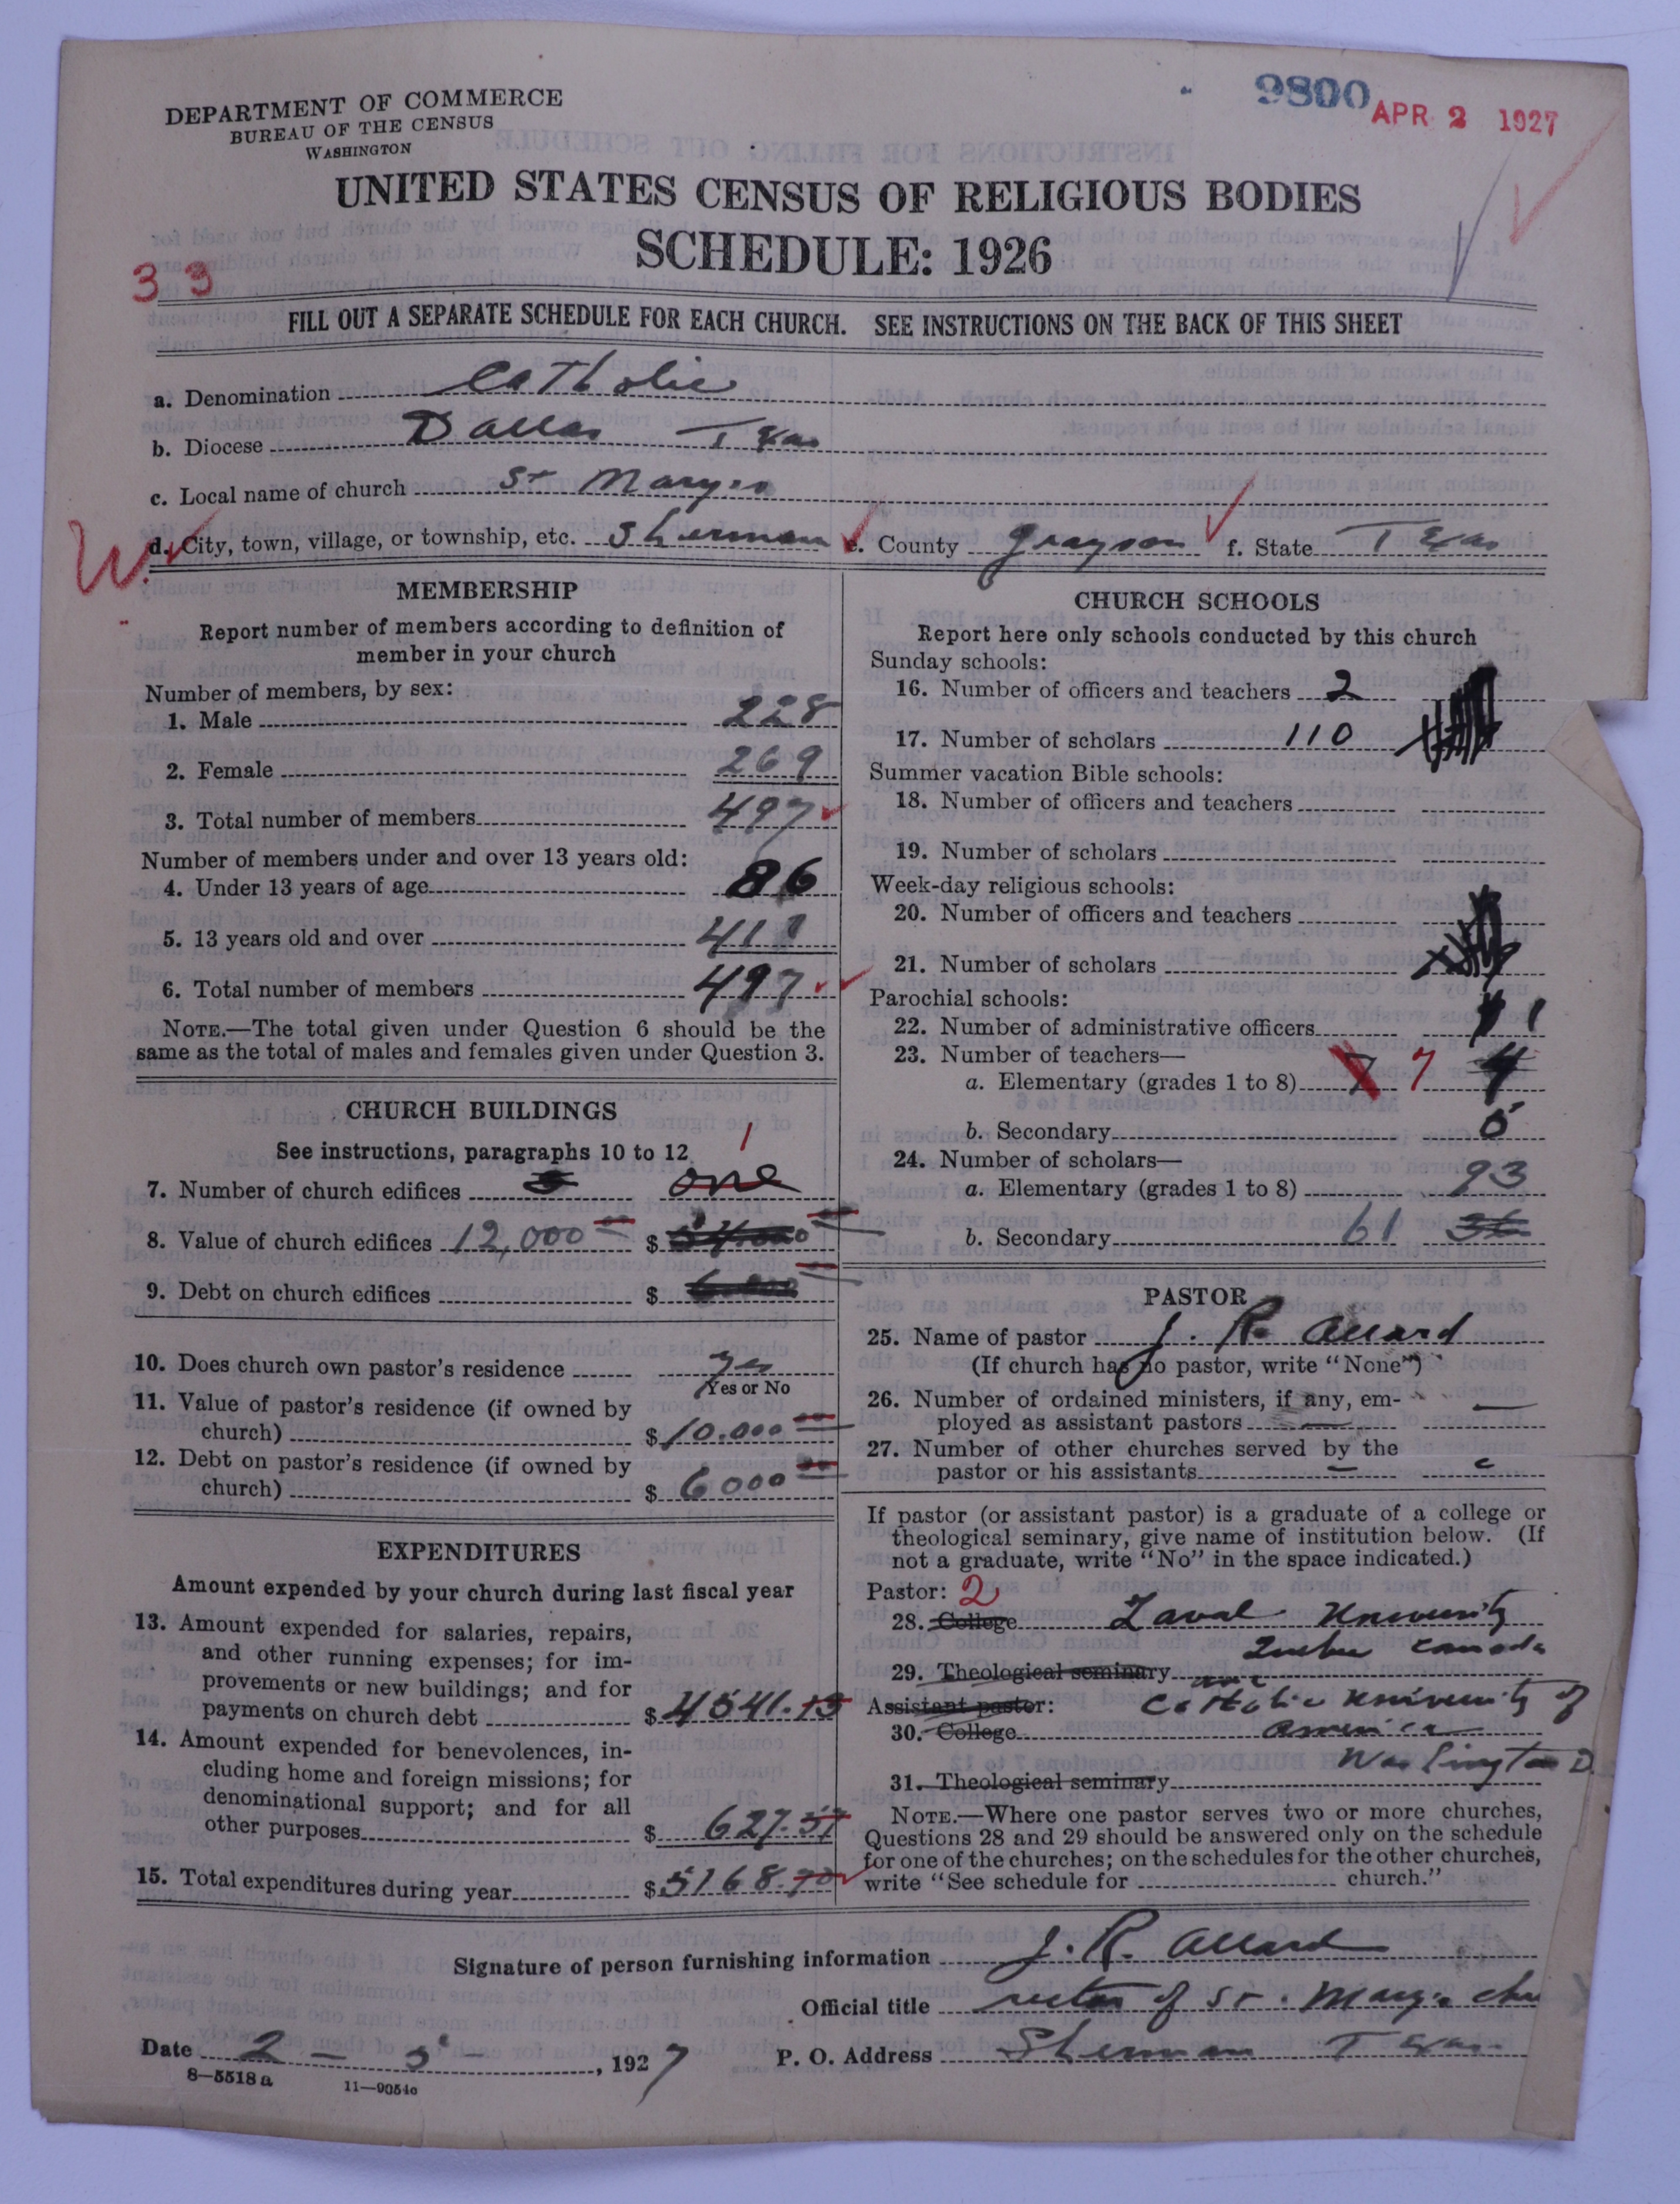 9800 APR 2 1927
DEPARTMENT OF COMMERCE
BUREAU OF THE CENSUS
WASHINGTON
UNITED STATES CENSUS OF RELIGIOUS BODIES
SCHEDULE: 1926
33
FILL OUT A SEPARATE SCHEDULE FOR EACH CHURCH. SEE INSTRUCTIONS ON THE BACK OF THIS SHEET
a. Denomination Catholic
b. Diocese Dallas Texas
c. Local name of church St Mary's
W. d. City, town, village, or township, etc. Sherman e. County Grayson f. State Texas
MEMBERSHIP
Report number of members according to definition of
member in your church
Number of members, by sex:
1. Male 228
2. Female 269
3. Total number of members 497
Number of members under and over 13 years old:
4. Under 13 years of age 86
5. 13 years old and over 411
6. Total number of members 497
NOTE.—The total given under Question 6 should be the
same as the total of males and females given under Question 3.
CHURCH BUILDINGS
See instructions, paragraphs 10 to 12
1
7. Number of church edifices one
8. Value of church edifices 12,000 $
9. Debt on church edifices $
10. Does church own pastor's residence yes
Yes or No
11. Value of pastor's residence (if owned by
church) $ 10.000
12. Debt on pastor's residence (if owned by
church) $ 6000
EXPENDITURES
Amount expended by your church during last fiscal year
13. Amount expended for salaries, repairs,
and other running expenses; for im-
provements or new buildings; and for
payments on church debt $ 4541.13
14. Amount expended for benevolences, in-
cluding home and foreign missions; for
denominational support; and for all
other purposes $ 627.57
15. Total expenditures during year $ 5168.70
CHURCH SCHOOLS
Report here only schools conducted by this church
Sunday schools:
16. Number of officers and teachers 2
17. Number of scholars 110
Summer vacation Bible schools:
18. Number of officers and teachers
19. Number of scholars
Week-day religious schools:
20. Number of officers and teachers
21. Number of scholars
Parochial schools:
22. Number of administrative officers 1
23. Number of teachers—
a. Elementary (grades 1 to 8) 7 7 4
b. Secondary
24. Number of scholars—
a. Elementary (grades 1 to 8) 93
b. Secondary 61 36
PASTOR
25. Name of pastor J. R. Allard
(If church has no pastor, write "None")
26. Number of ordained ministers, if any, em-
ployed as assistant pastors —
27. Number of other churches served by the
pastor or his assistants –
If pastor (or assistant pastor) is a graduate of a college or
theological seminary, give name of institution below. (If
not a graduate, write "No" in the space indicated.)
Pastor: 2
28. College Laval University
Quebec Canada
29. Theological seminary and
Assistant pastor: Catholic University of
30. College America
Washington D
31. Theological seminary
NOTE.—Where one pastor serves two or more churches,
Questions 28 and 29 should be answered only on the schedule
for one of the churches; on the schedules for the other churches,
write "See schedule for church."
Signature of person furnishing information J. R. Allard
Official title rector of St. Mary's chu
Date 2 – 3 – , 1927 P. O. Address Sherman Texas
8—5518a 11—9054a